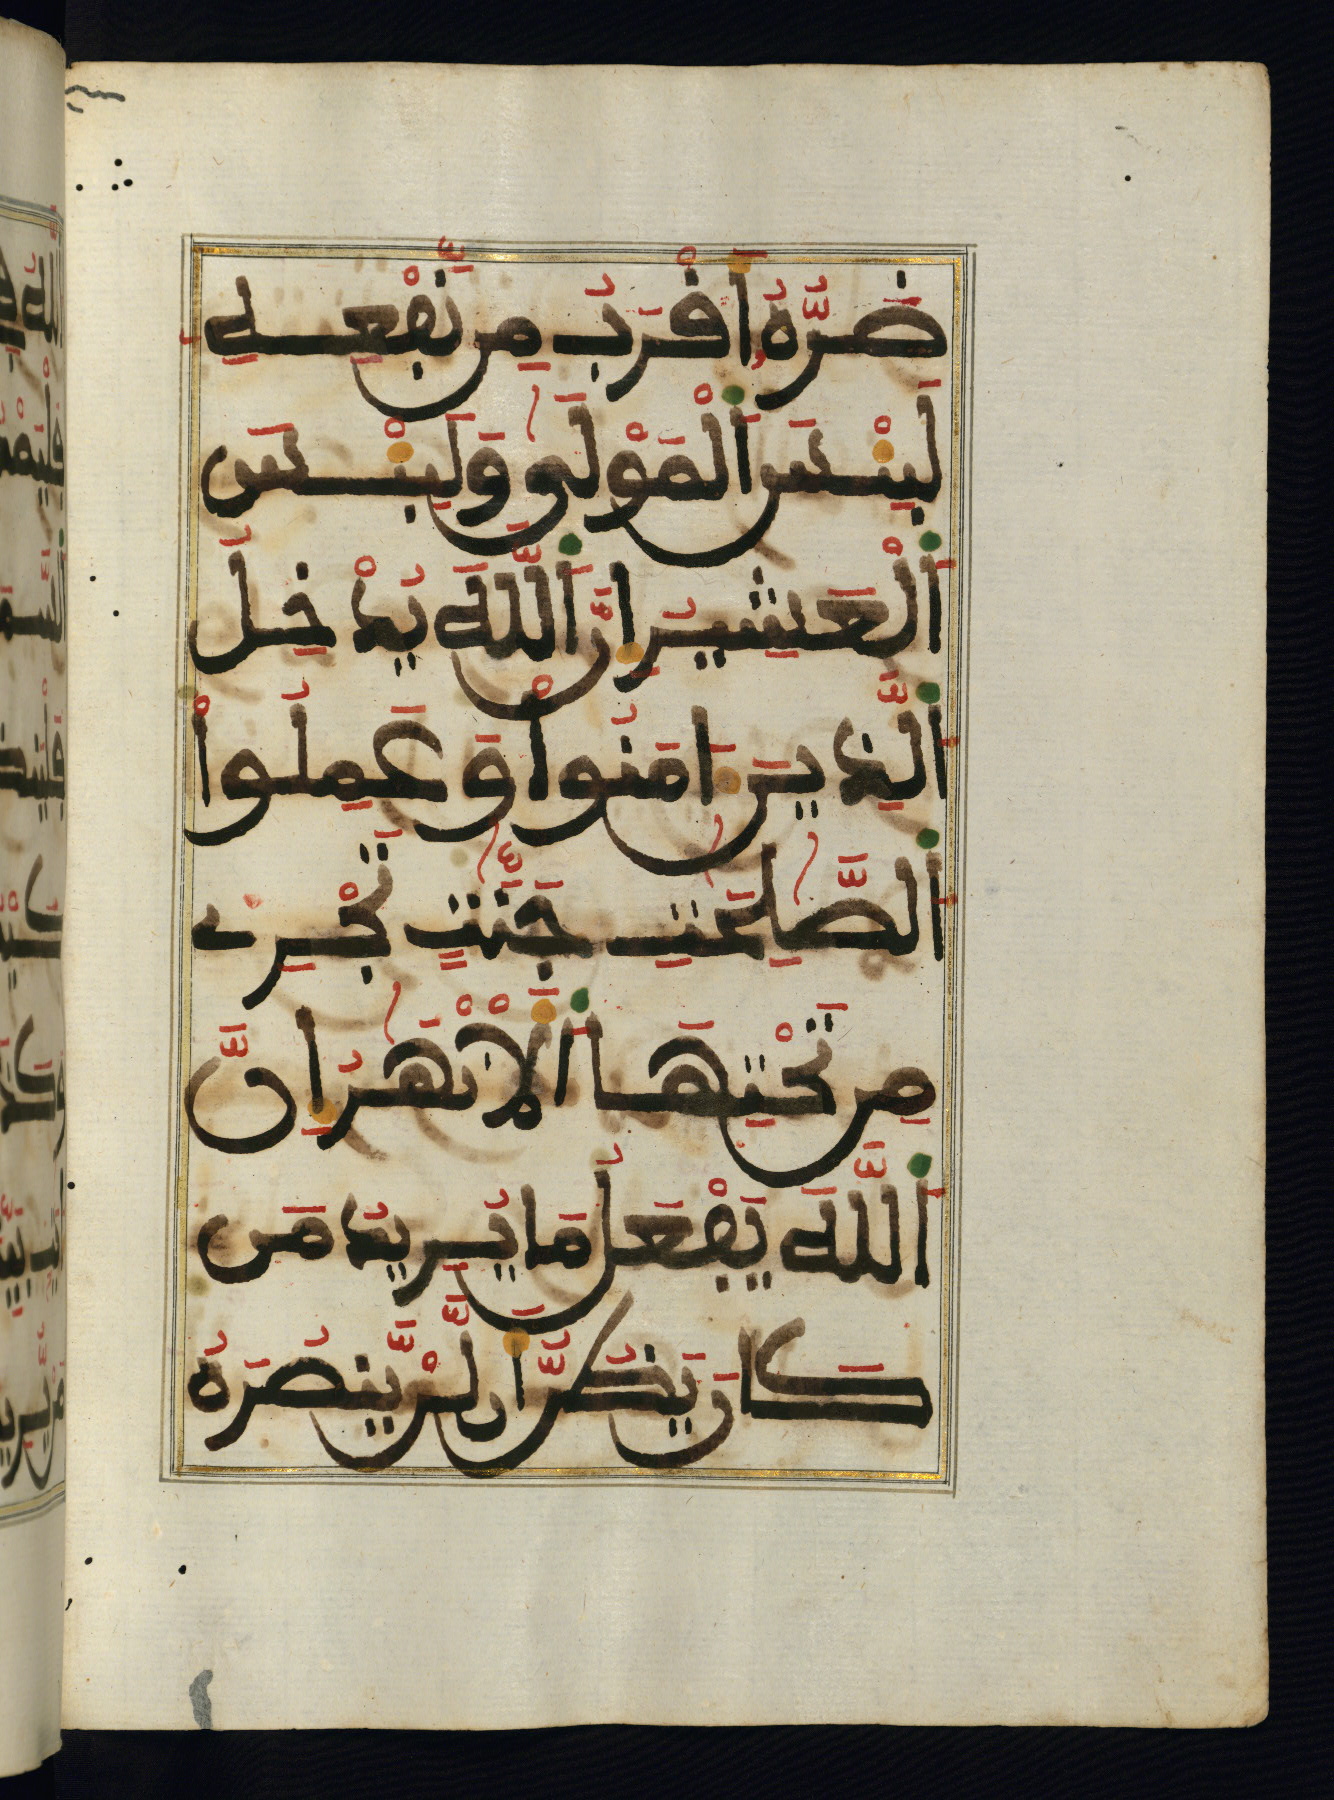 ضَرُّهُۥٓ أَقْرَبُ مِن نَّفْعِهِۦ
لَبِئْسَ ٱلْمَوْلَىٰ وَلَبِئْسَ
ٱلْعَشِيرُ إِنَّ ٱللَّهَ يُدْخِلُ
ٱلَّذِينَ ءَامَنُوا۟ وَعَمِلُوا۟
ٱلصَّٰلِحَٰتِ جَنَّٰتٍ تَجْرِے
مِن تَحْتِهَا ٱلْأَنْهَٰرُ إِنَّ
ٱللَّهَ يَفْعَلُ مَا يُرِيدُ مَن
كَانَ يَظُنُّ أَن لَّن يَّنصُرَهُ